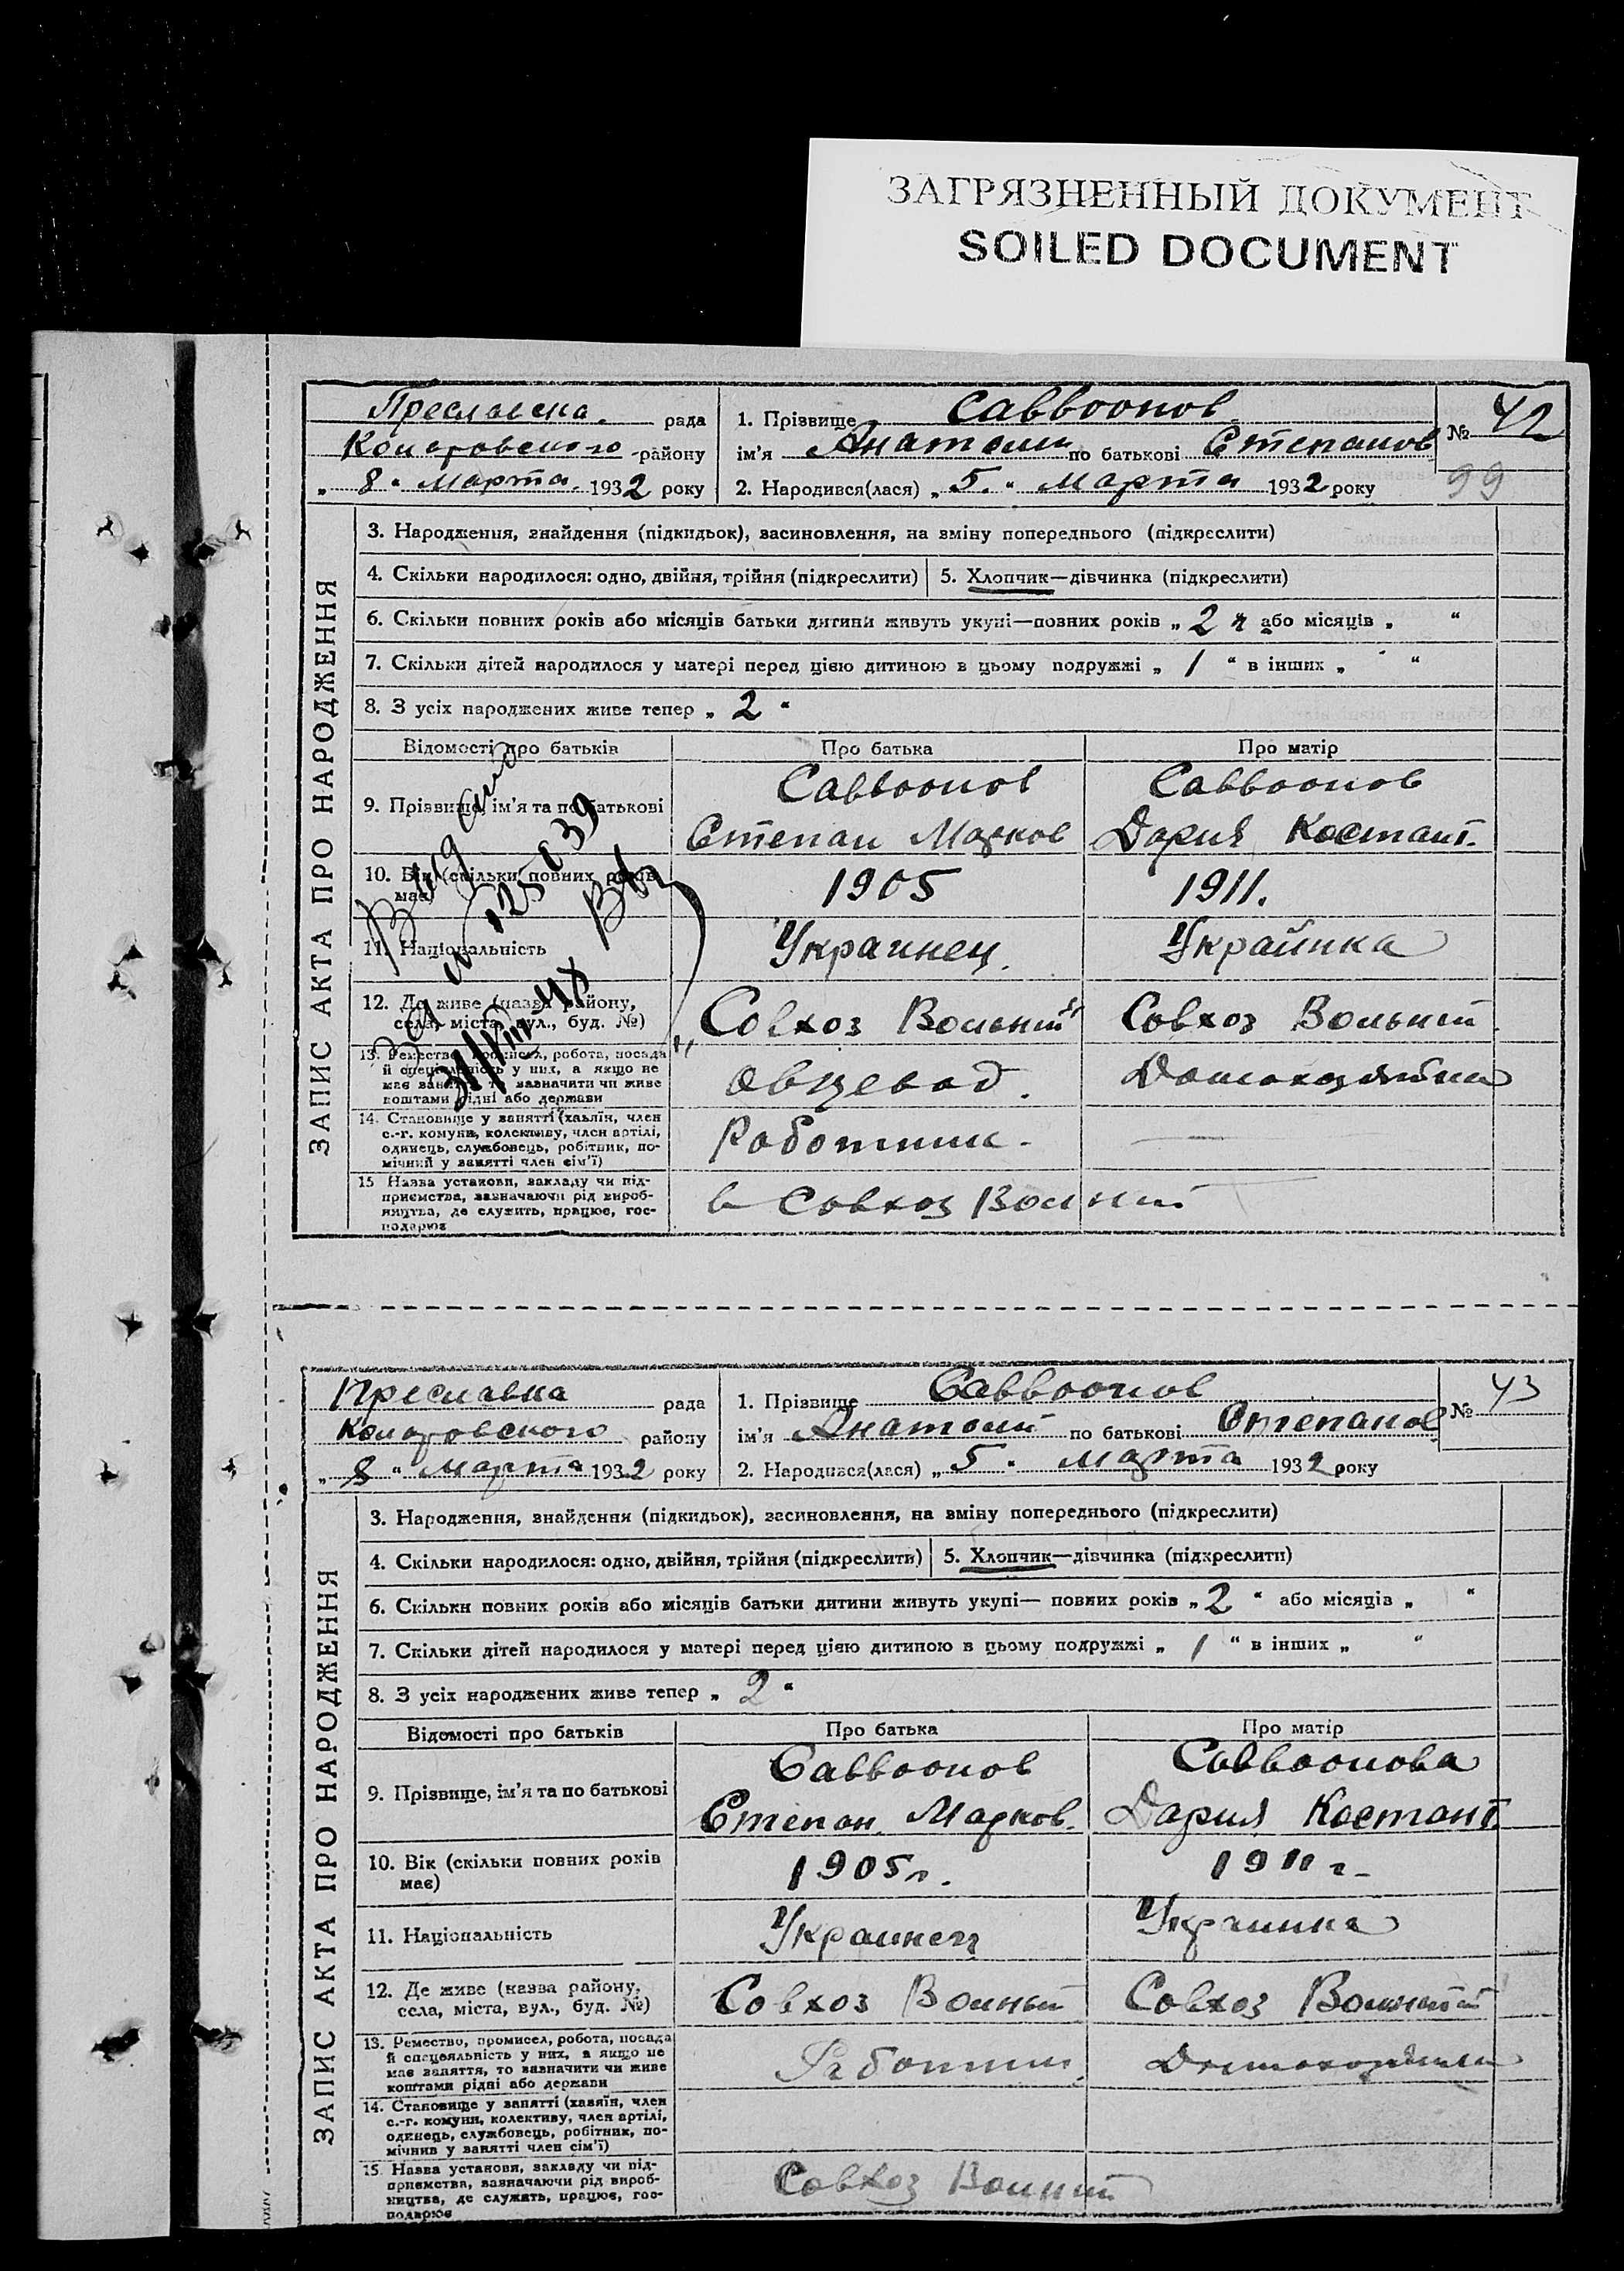 ЗАГРЯЗНЕННЫЙ ДОКУМЕНТ
SOILED DOCUMENT
ЗАПИС АКТА ПРО НАРОДЖЕННЯ
рада
району
„ 8 “ Марта 1932 року
1. Прізвище Савбоонов
ім'я Анатолий по батькові Степанов
2. Народився(лася) „ 5. “ Марта 1932 року
№ 42
99
3. Народження, знайдення (підкидьок), засиновлення, на зміну попереднього (підкреслити)
4. Скільки народилося: одно, двійня, трійня (підкреслити)
5. Хлопчик—дівчинка (підкреслити)
6. Скільки повних років або місяців батьки дитини живуть укупі—повних років „ 2 “ або місяців „ “
7. Скільки дітей народилося у матері перед цією дитиною в цьому подружжі „ 1 “ в інших „ “
8. З усіх народжених живе тепер „ 2 “
Відомості про батьків
Про батька
Про матір
9. Прізвище, ім'я та по батькові
Савбоонов
Степан Марков
Савбоонов
Дария Костант.
10. Вік (скільки повних років має)
1905
1911.
11. Національність
Украинец.
Украйнка
12. Де живе (назва району,
села, міста, вул., буд. №)
Совхоз Вольный
Совхоз Вольный
13. Ремество, промисел, робота, посада
й спеціяльність у них, а якщо не
має заняття, то зазначити чи живе
коштами рідні або держави
Овцевод.
Домохозяйка
14. Становище у занятті (хазяїн, член
с.-г. комуни, колективу, член артілі,
одинець, службовець, робітник, по-
мічний у занятті член сім'ї)
Работник.
15 Назва установи, закладу чи під-
приємства, зазначаючи рід вироб-
ництва, де служить, працює, гос-
подарює
в Совхоз Волный
ЗАПИС АКТА ПРО НАРОДЖЕННЯ
рада
району
„ 8 “ Марта 1932 року
1. Прізвище Савбоонов
ім'я Анатолий по батькові Степанов
2. Народився(лася) „ 5 “ Марта 1932 року
№ 43
3. Народження, знайдення (підкидьок), засиновлення, на зміну попереднього (підкреслити)
4. Скільки народилося: одно, двійня, трійня (підкреслити)
5. Хлопчик—дівчинка (підкреслити)
6. Скільки повних років або місяців батьки дитини живуть укупі— повних років „ 2 “ або місяців „ “
7. Скільки дітей народилося у матері перед цією дитиною в цьому подружжі „ 1 “ в інших „ “
8. З усіх народжених живе тепер „ 2 “
Відомості про батьків
Про батька
Про матір
9. Прізвище, ім'я та по батькові
Савбоонов
Степан Марков.
Савбоонова
Дария Костант.
10. Вік (скільки повних років
має)
1905 г.
1911 г.
11. Національність
Украинец
Украинка
12. Де живе (назва району,
села, міста, вул., буд. №)
Совхоз Волный
Совхоз Волный
13. Ремество, промисел, робота, посада
й спецеяльність у них, а якщо не
має заняття, то зазначити чи живе
коштами рідні або держави
Работник
Домохозяйка
14. Становище у занятті (хазяїн, член
с.-г. комуни, колективу, член артілі,
одинець, службовець, робітник, по-
мічний у занятті член сім'ї)
15. Назва установи, закладу чи під-
приємства, зазначаючи рід вироб-
ництва, де служить, працює, гос-
подарює
Совхоз Волный